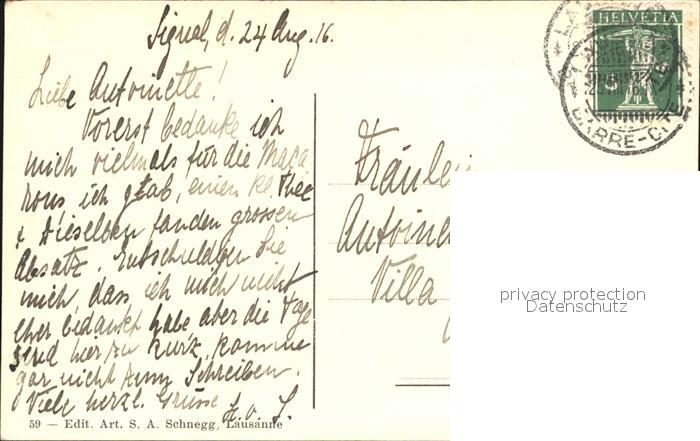 Signal, d. 24 Aug. 16.
Liebe Antoinette!
Vorerst bedanke ich
mich vielmals für die Maca
rons, ich gab, einen kl. Thee
& dieselben fanden grossen
Absatz. Entschuldgen Sie
mich, dass ich mich nicht
eher bedankt habe aber die Tage
sind hier zu kurz, komme
gar nicht zum Schreiben.
Viele herzl. Grüsse
H. v. S.
59 — Edit. Art. S. A. Schnegg, Lausanne
HELVETIA
5
BARRE-CITÉ
Fräulein
Antoine
Villa
privacy protection
Datenschutz